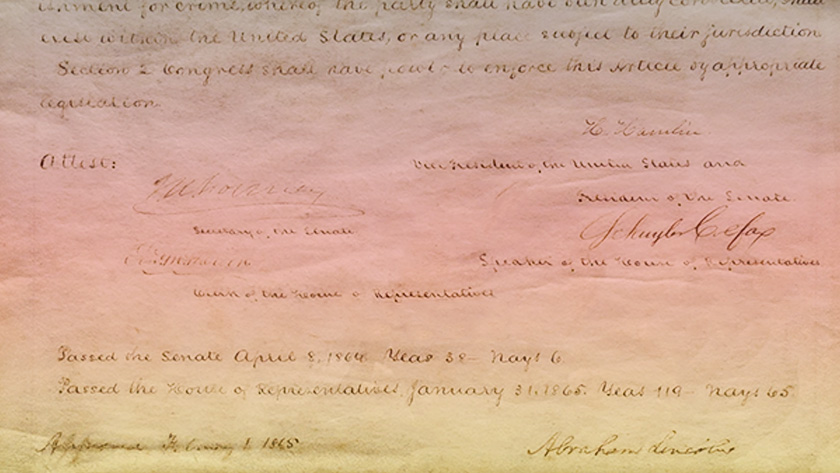 ishment for crime, whereof the party shall have been duly convicted, shall
exist within the United States, or any place subject to their jurisdiction
Section 2 Congress shall have power to enforce this Article by appropriate
legislation
H. Hamlin
Attest:
Vice President of the United States and
President of the Senate.
J W Forney
Schuyler Colfax
Secretary of the Senate
Speaker of the House of Representatives
Clerk of the House of Representatives
Passed the Senate April 8, 1864 Yeas 38 – Nays 6
Passed the House of Representatives, January 31, 1865. Yeas 119 – Nays 65
Approved February 1. 1865
Abraham Lincoln